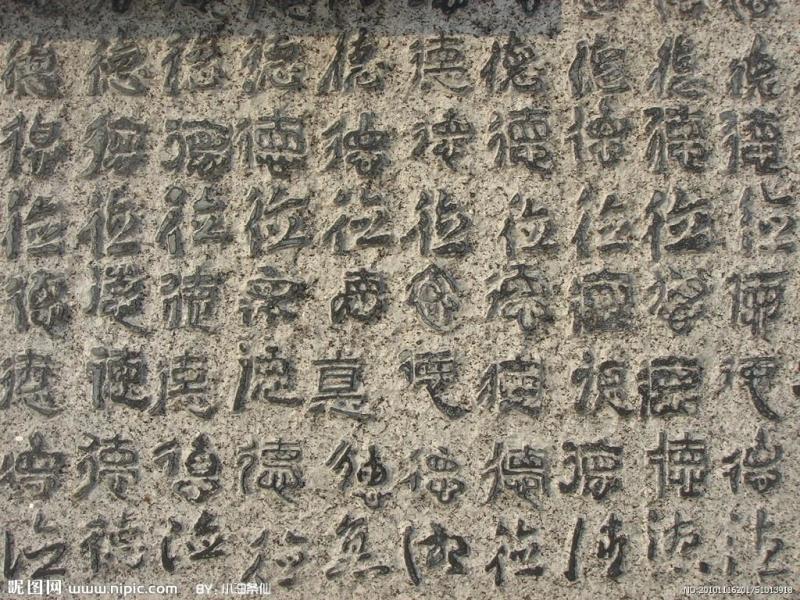 德德德德德德德德德德
德德德德德德德德德德
德德德德德德德德德德
德德德德德德德德德德
德德德德悳德德德德德
德德德德德德德德德德
德德德德德德德德德德
昵图网 www.nipic.com BY:
NO:20101116201751013918